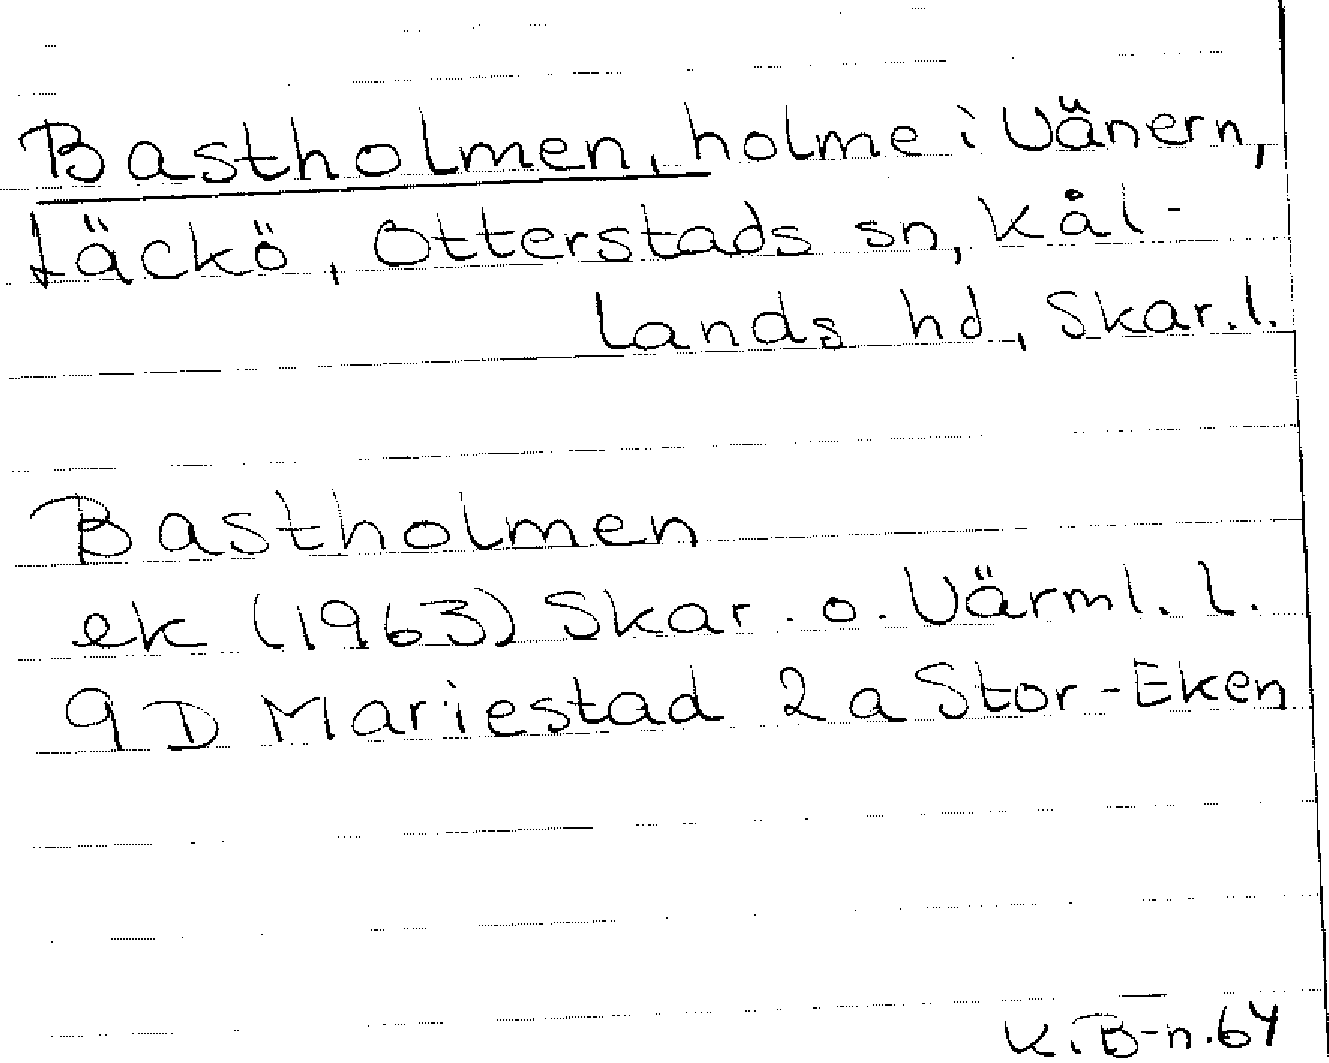 Bastholmen, holme i Vänern,
Läckö, Otterstads sn, Kål-
lands hd, Skar.l.
Bastholmen
ek (1963) Skar. o. Värml. l.
9D Mariestad 2a Stor-Eken
K.B-n.64